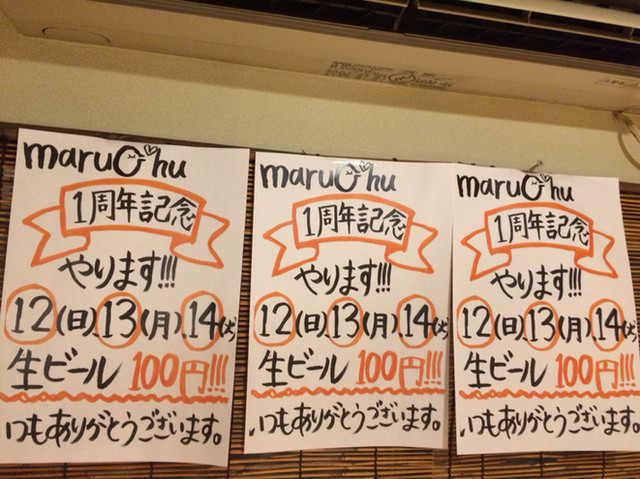 maruOhu
1周年記念
やります!!!
12(日).13(月).14(火)
生ビール 100円!!!
いつもありがとうございます。
maruOhu
1周年記念
やります!!!
12(日).13(月).14(火)
生ビール 100円!!!
いつもありがとうございます。
maruOhu
1周年記念
やります!!!
12(日).13(月).14(火)
生ビール 100円!!!
いつもありがとうございます。